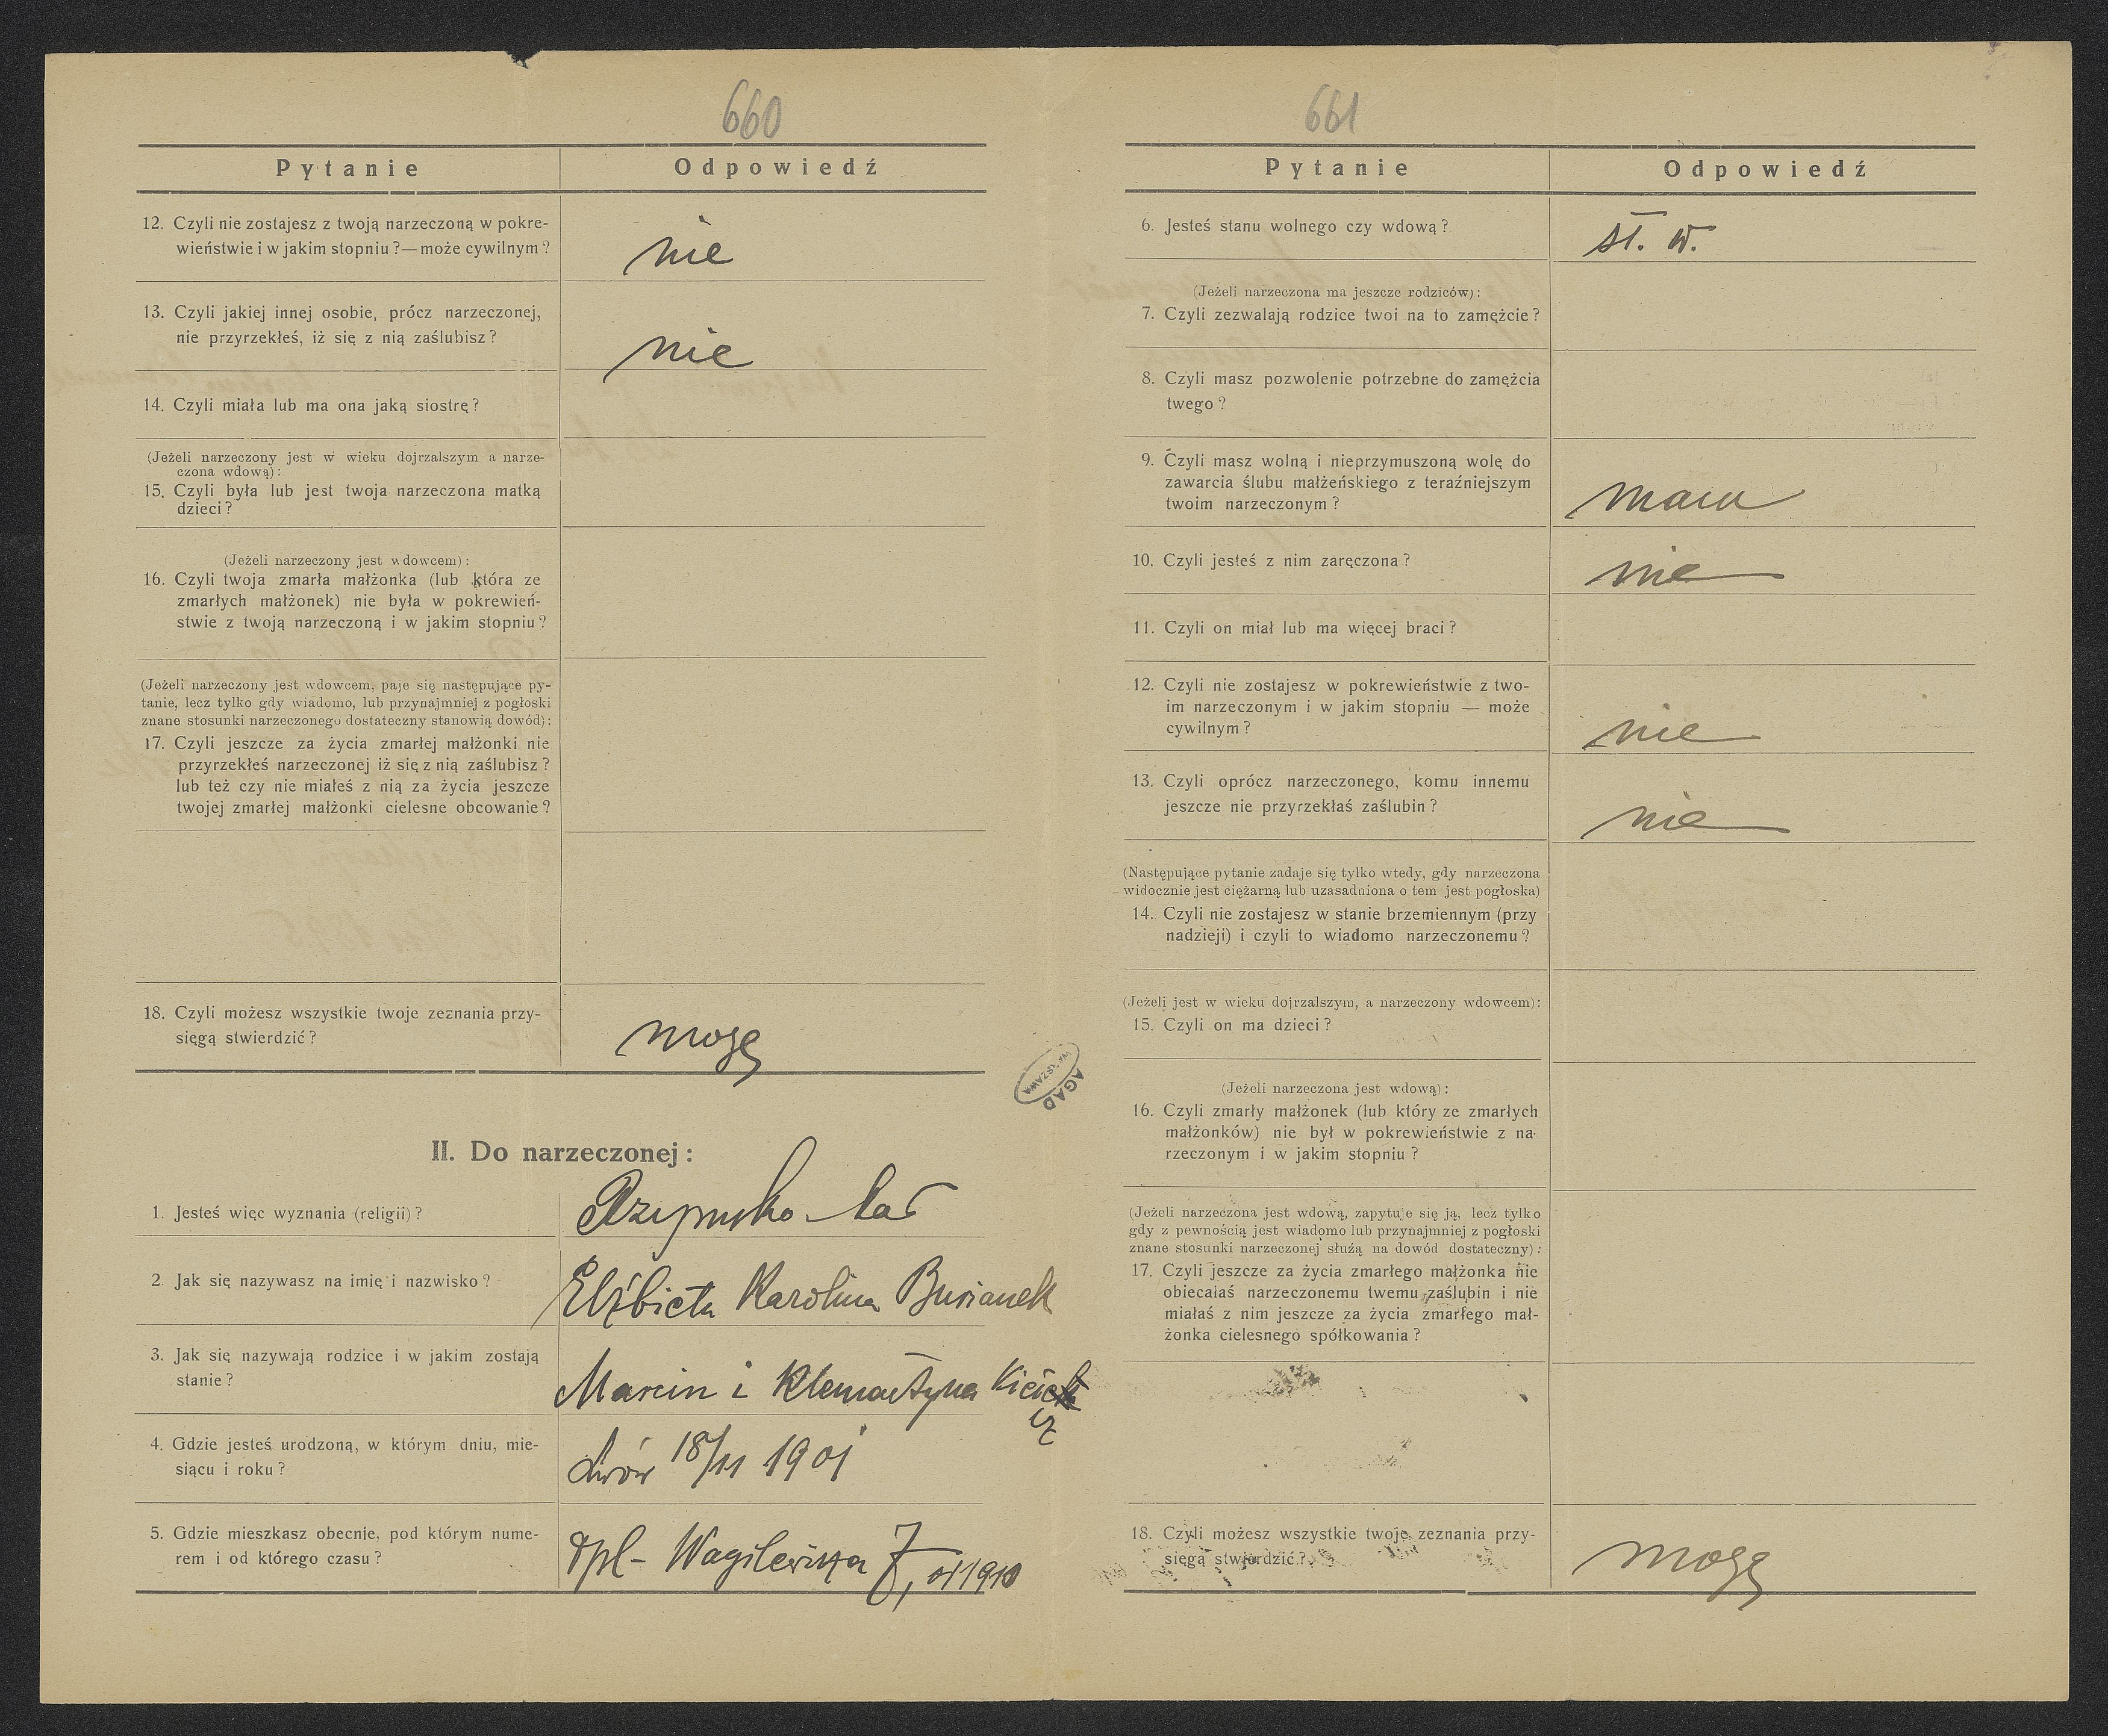 660
Pytanie
Odpowiedź
12. Czyli nie zostajesz z twoją narzeczoną w pokre-
wieństwie i w jakim stopniu?—może cywilnym?
nie
13. Czyli jakiej innej osobie, prócz narzeczonej,
nie przyrzekłeś, iż się z nią zaślubisz?
nie
14. Czyli miała lub ma ona jaką siostrę?
(Jeżeli narzeczony jest w wieku dojrzalszym a narze-
czona wdową):
15. Czyli była lub jest twoja narzeczona matką
dzieci?
(Jeżeli narzeczony jest wdowcem):
16. Czyli twoja zmarła małżonka (lub która ze
zmarłych małżonek) nie była w pokrewień-
stwie z twoją narzeczoną i w jakim stopniu?
(Jeżeli narzeczony jest wdowcem, paje się następujące py-
tanie, lecz tylko gdy wiadomo, lub przynajmniej z pogłoski
znane stosunki narzeczonego dostateczny stanowią dowód):
17. Czyli jeszcze za życia zmarłej małżonki nie
przyrzekłeś narzeczonej iż się z nią zaślubisz?
lub też czy nie miałeś z nią za życia jeszcze
twojej zmarłej małżonki cielesne obcowanie?
18. Czyli możesz wszystkie twoje zeznania przy-
sięgą stwierdzić?
mogę
II. Do narzeczonej:
1. Jesteś więc wyznania (religii)?
Rzymsko-łać
2. Jak się nazywasz na imię i nazwisko?
Elżbieta Karolina Burianek
3. Jak się nazywają rodzice i w jakim zostają
stanie?
Marcin i Klementyna
4. Gdzie jesteś urodzoną, w którym dniu, mie-
siącu i roku?
Lwów 18/11 1901
5. Gdzie mieszkasz obecnie, pod którym nume-
rem i od którego czasu?
Wagilewicza 7, od 1910
AGAD
WARSZAWA
661
Pytanie
Odpowiedź
6. Jesteś stanu wolnego czy wdową?
st. w.
(Jeżeli narzeczona ma jeszcze rodziców):
7. Czyli zezwalają rodzice twoi na to zamężcie?
8. Czyli masz pozwolenie potrzebne do zamężcia
twego?
9. Czyli masz wolną i nieprzymuszoną wolę do
zawarcia ślubu małżeńskiego z teraźniejszym
twoim narzeczonym?
mam
10. Czyli jesteś z nim zaręczona?
nie
11. Czyli on miał lub ma więcej braci?
12. Czyli nie zostajesz w pokrewieństwie z two-
im narzeczonym i w jakim stopniu — może
cywilnym?
nie
13. Czyli oprócz narzeczonego, komu innemu
jeszcze nie przyrzekłaś zaślubin?
nie
(Następujące pytanie zadaje się tylko wtedy, gdy narzeczona
widocznie jest ciężarną lub uzasadniona o tem jest pogłoska)
14. Czyli nie zostajesz w stanie brzemiennym (przy
nadzieji) i czyli to wiadomo narzeczonemu?
(Jeżeli jest w wieku dojrzalszym, a narzeczony wdowcem):
15. Czyli on ma dzieci?
(Jeżeli narzeczona jest wdową):
16. Czyli zmarły małżonek (lub który ze zmarłych
małżonków) nie był w pokrewieństwie z na-
rzeczonym i w jakim stopniu?
(Jeżeli narzeczona jest wdową, zapytuje się ją, lecz tylko
gdy z pewnością jest wiadomo lub przynajmniej z pogłoski
znane stosunki narzeczonej służą na dowód dostateczny):
17. Czyli jeszcze za życia zmarłego małżonka nie
obiecałaś narzeczonemu twemu zaślubin i nie
miałaś z nim jeszcze za życia zmarłego mał-
żonka cielesnego spółkowania?
18. Czyli możesz wszystkie twoje zeznania przy-
sięgą stwierdzić?
mogę